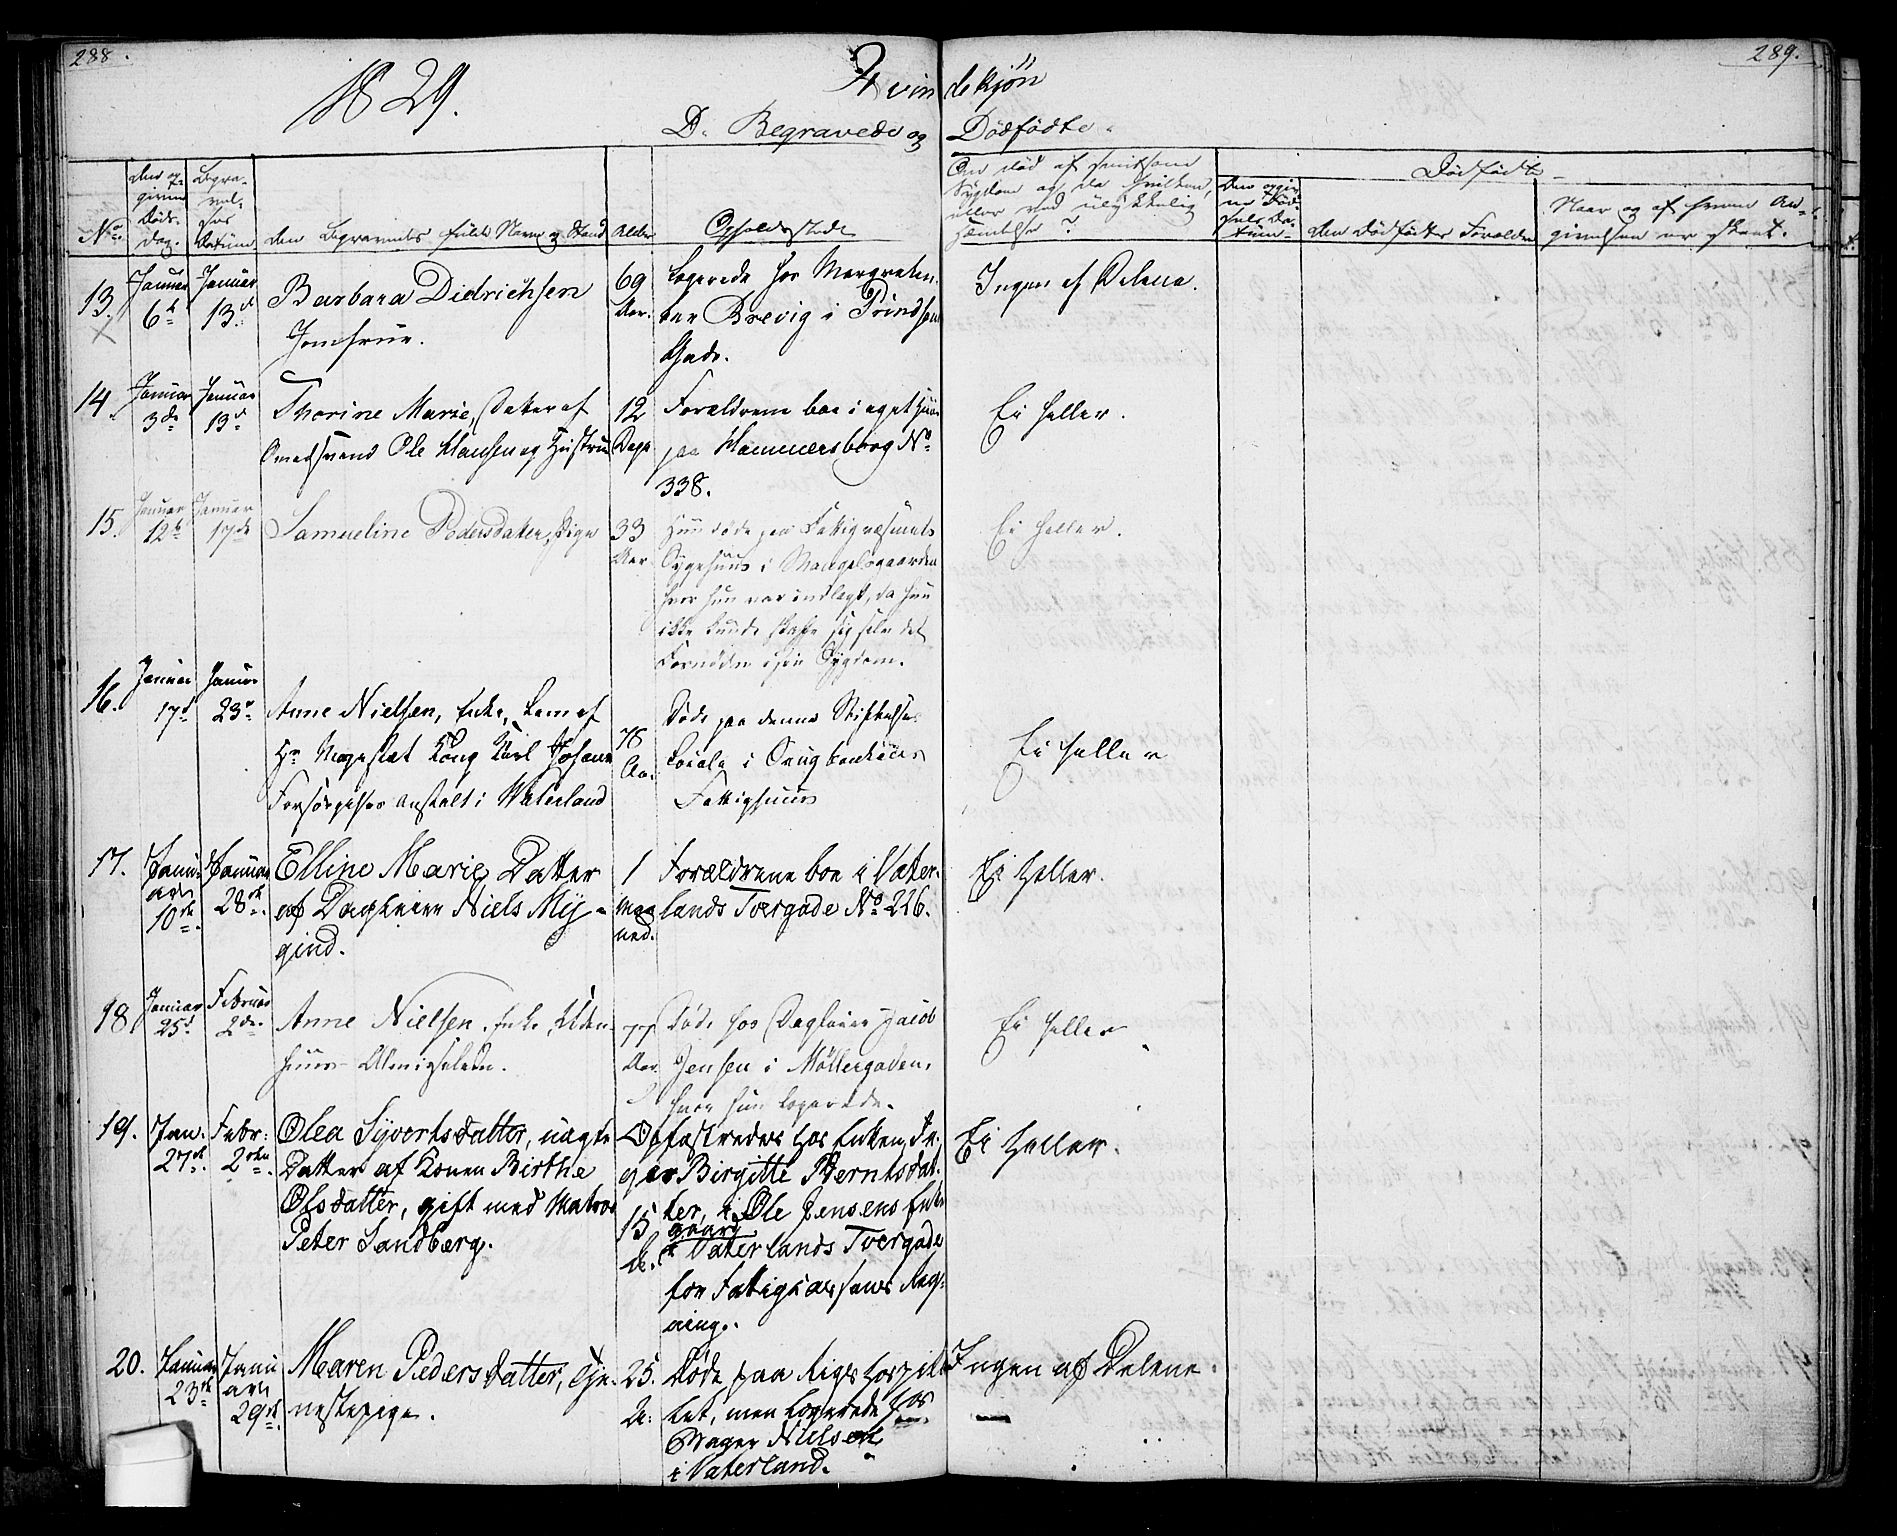 288.
289.
1829.
Qvindekjøn
D. Begravede og Dödfödte.
No.
Den opgivne Döds Dag.
Begravelses Datum
Den Begravnes fulde Navn og Stand
Alder
Opholdsstedet
Om död af smitsom
Sygdom og da hvilken,
eller ved ulykkelig
Hændelse?
Dödfödte
Den opgivne Födsels Datum
Den Dödfödtes Forældre
Naar og af hvem Angivelsen er skeet.
13.
Januar 6te
Januar 13de
Barbara Didrichsen
Jomfrue.
69 Aar.
Logerede hos
Brevig i Prindsens
Gade.
Ingen af Delene.
14.
Januar 3die
Januar 13de
Thorine Marie, Datter af
Ole Hansen og Hustrue
12 Dage
Forældrene boe i eget Huus
paa Hammersborg No.
338.
Ei heller.
15.
Januar 12te
Januar 17de
Samueline Pedersdatter, Pige
33 Aar
Hun döde paa Fattigvæsenets
Sygehuus i Mangelsgaarden
hvor hun var indlagt, da hun
ikke kunde skaffe sig selv det
Fornødne i sin Sygdom.
Ei heller.
16.
Januar 17de
Januar 23de
Anne Nielsen, Enke, Lem af
Hs Majestæt Kong Karl Johans
Forsørgelses Anstalt i Waterland
78 Aar.
Döde paa denne Stiftelses
Locale i
Fattighuus
Ei heller
17.
Januar 10de
Januar 28de
Elline Marie Datter
af Dagleier Niels Mygind.
1 Maaned.
Forældrene boe i Vaterlands Tvergade No 226.
Ei heller.
18
Januar 25de
Februar 2den
Anne Nielsen, Enke,
huus Almisselem.
77 Aar
Döde hos Dagleier Jacob
Jensen i Møllergaden,
hvor hun logerede.
Ei heller
19.
Jan. 27de
Febr: 2den
Olea Syvertsdatter, uægte
Datter af Konen Birthe
Olsdatter, gift med Matros
Peter Sandberg.
15 A.
Opfostredes hos Enken
Birgitte Berntsdatter, i Ole Jensens Enkes
gaard
i Vaterlands Tvergade
for Fattigkassens Regning.
Ei heller.
20.
Januar 23de
Januari 29de
Maren Pedersdatter, Tjenestepige.
25. A:
Döde paa Rigshospitalet, men logerede hos
Nielsen
i Vaterland.
Ingen af Delene.